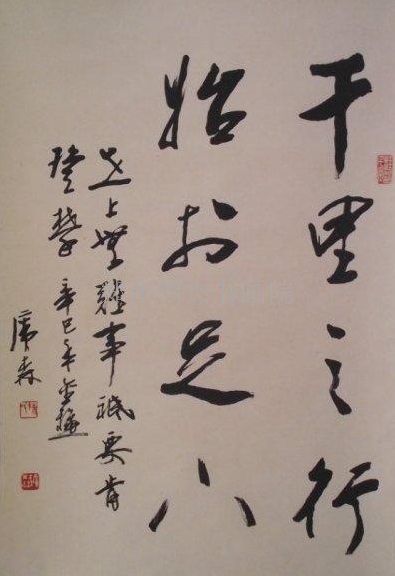 千里之行
始於足下
世上無難事祇要肯
登攀 辛巳年
席森